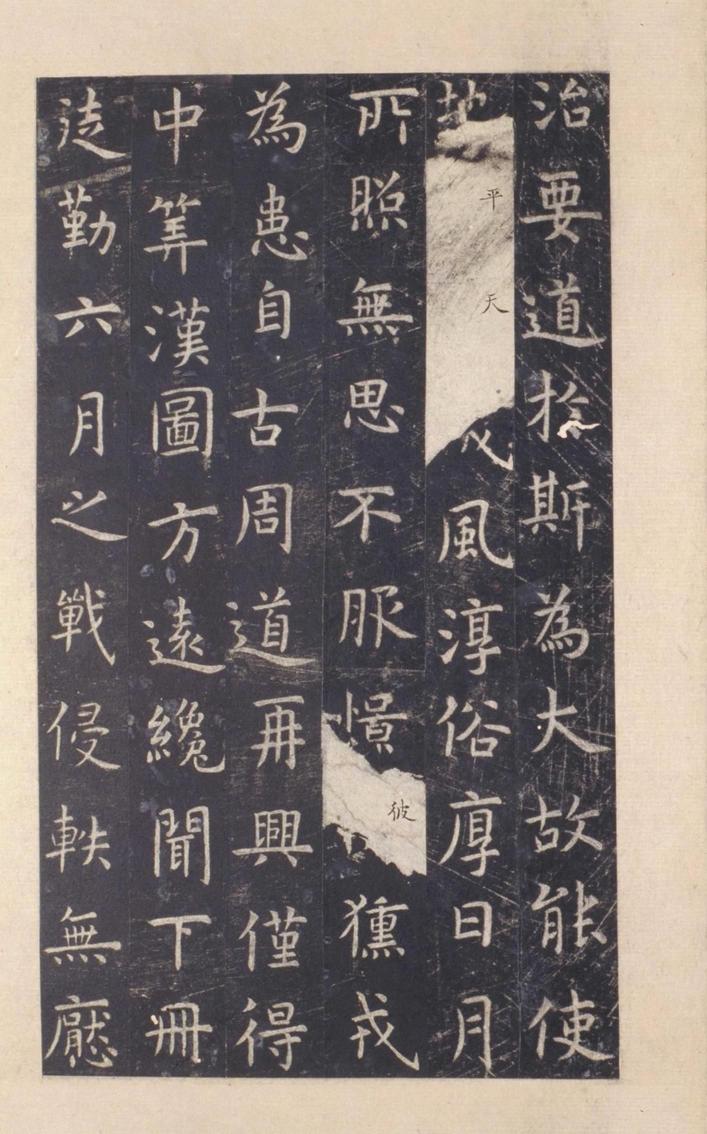 治要道扵斯為大故能使
地平天風淳俗厚日月
所照無思不服憬彼獯戎
為患自古周道再興僅得
中筭漢圖方遠纔聞下冊
徒勤六月之戰侵軼無厭